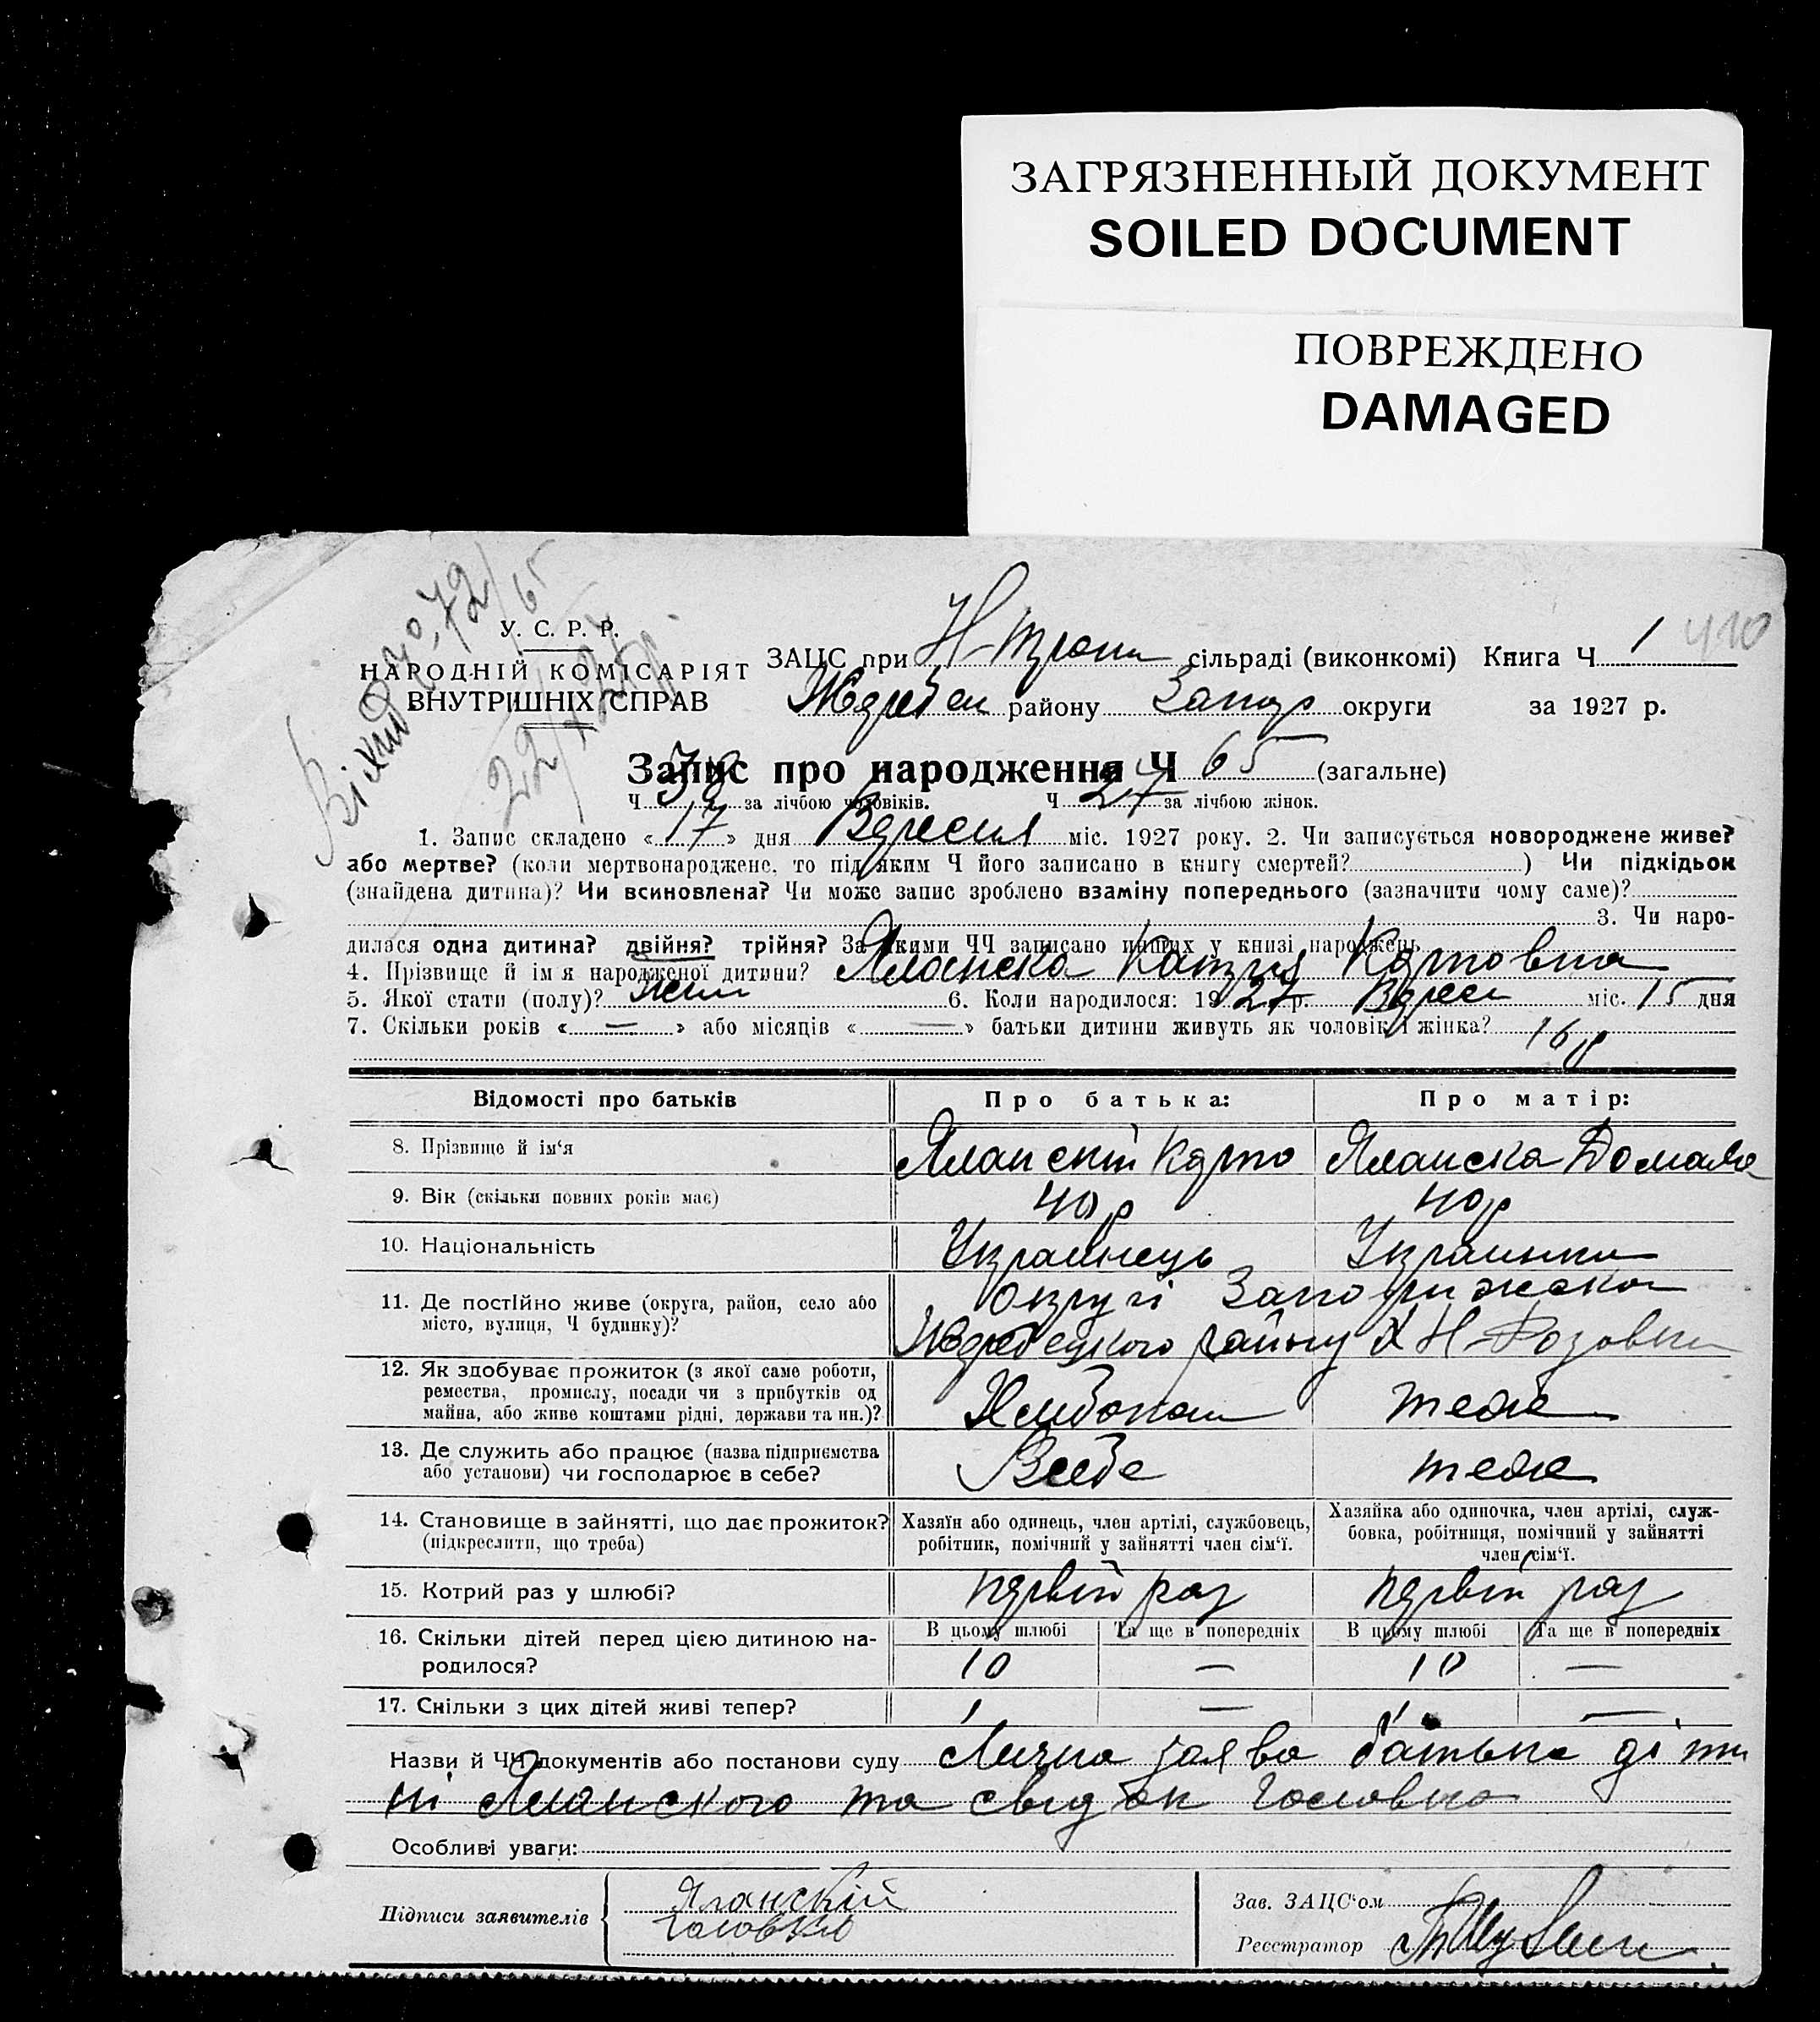 ЗАГРЯЗНЕННЫЙ ДОКУМЕНТ
SOILED DOCUMENT
ПОВРЕЖДЕНО
DAMAGED
72/65
410
У. С. Р. Р.
НАРОДНІЙ КОМІСАРІЯТ
ВНУТРІШНІХ СПРАВ
ЗАЦС при Н-Трони сільраді (виконкомі) Книга Ч 1
Жеребец району Запор округи за 1927 р.
Запис про народження Ч 65 (загальне)
Ч 38 за лічбою чоловіків. Ч 27 за лічбою жінок.
1. Запис складено « 17 » дня Вересня міс. 1927 року. 2. Чи записується новороджене живе?
або мертве? (коли мертвонароджене, то під яким Ч його записано в книгу смертей? ) Чи підкідьок
(знайдена дитина)? Чи всиновлена? Чи може запис зроблено взаміну попереднього (зазначити чому саме)?
3. Чи наро-
дилася одна дитина? двійня? трійня? За якими ЧЧ записано инших у книзі народжень
4. Прізвище й ім'я народженої дитини? Яланска Катря Карповна
5. Якої стати (полу)? жин 6. Коли народилося: 1927 р. Верес міс. 15 дня
7. Скільки років « — » або місяців « — » батьки дитини живуть як чоловік і жінка? 16 р
Відомості про батьків Про батька: Про матір:
8. Прізвище й ім'я Яланский Карпо Яланска Домаха
9. Вік (скільки повних років має) 40 р 40 р
10. Національність Украинець Украинка
11. Де постійно живе (округа, район, село або Округі Запорижска
місто, вулиця, Ч будинку)? Жеребецкого району Х Н-Розовка
12. Як здобуває прожиток (з якої саме роботи,
ремества, промислу, посади чи з прибутків од
майна, або живе коштами рідні, держави та ин.)? Хлибопаш теже
13. Де служить або працює (назва підприємства
або установи) чи господарює в себе? Всебе теже
14. Становище в зайнятті, що дає прожиток? Хазяїн або одинець, член артілі, службовець, Хазяйка або одиночка, член артілі, служ-
(підкреслити, що треба) робітник, помічний у зайнятті член сім'ї. бовка, робітниця, помічний у зайнятті
член сім'ї.
15. Котрий раз у шлюбі? первій раз первій раз
16. Скільки дітей перед цією дитиною на- В цьому шлюбі Та ще в попередніх В цьому шлюбі Та ще в попередніх
родилося? 10 — 10 —
17. Скільки з цих дітей живі тепер? 1 — 1 —
Назви й ЧЧ документів або постанови суду Лична заява батька діти
ні Яланского та свидок Головко
Особливі уваги:
Підписи заявителів Яланскій
Головко
Зав. ЗАЦС'ом
Реєстратор